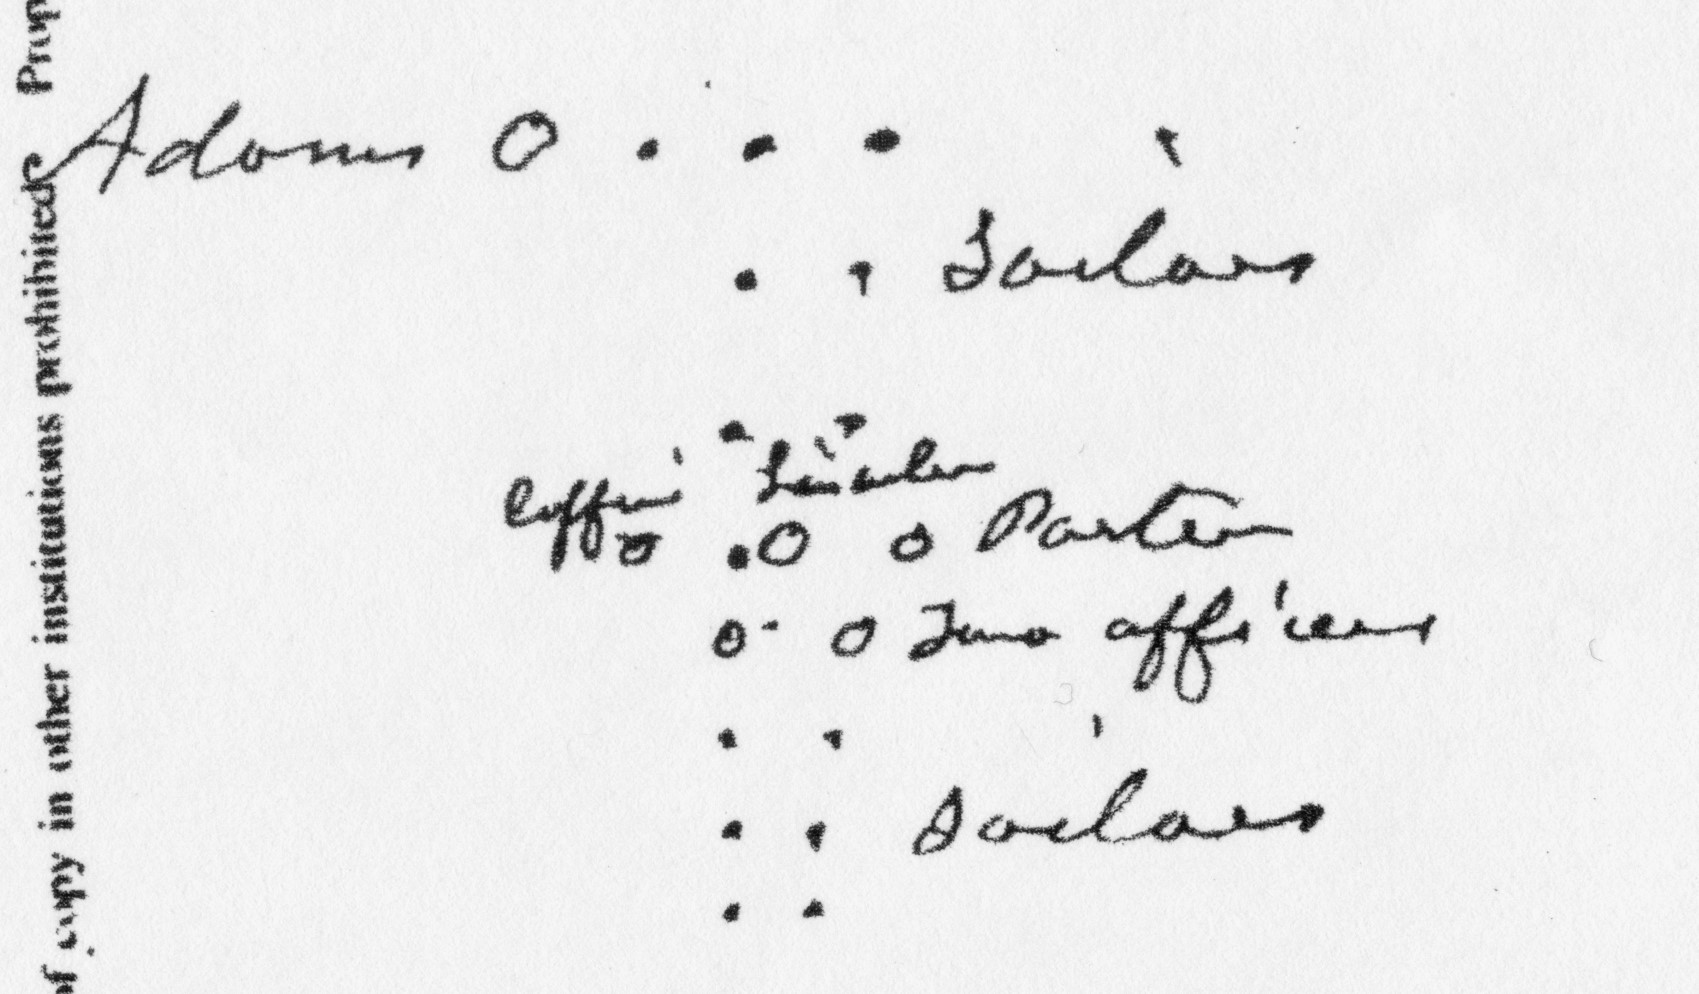 Adams
Sailors
Coffin Lincoln
Porter
Two officers
Sailors
of copy in other institutions prohibited